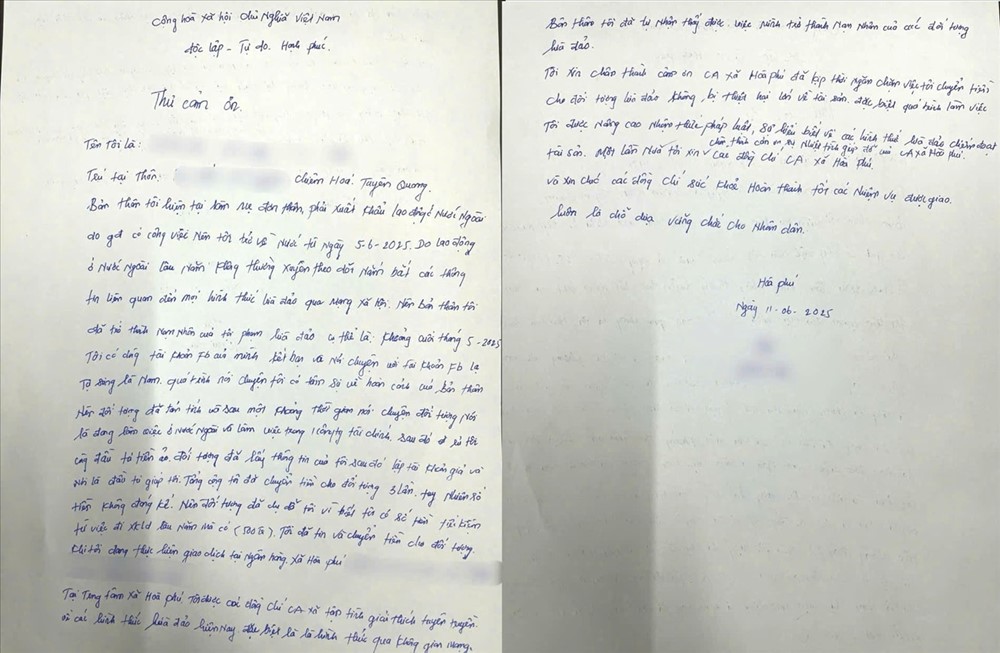 Cộng hoà xã hội chủ Nghĩa Việt Nam
độc lập - Tự do. Hạnh phúc.
Thư cảm ơn.
Tên Tôi là:
Trú tại Thôn. Chiêm Hoá, Tuyên Quang.
Bản thân tôi hiện tại làm mẹ đơn thân, phải xuất khẩu lao động ở Nước Ngoài
do gđ có công việc Nên tôi trở về Nước từ ngày 5-6-2025. Do lao động
ở Nước ngoài lâu Năm không thường xuyên theo dõi Nắm bắt các thông
tin liên quan đến mọi hình thức lừa đảo qua mạng xã hội. Nên bản thân tôi
đã trở thành Nạn Nhân của tội phạm lừa đảo cụ thể là. Khoảng cuối tháng 5-2025
Tôi có dùng tài khoản Fb của mình kết bạn và Nói chuyện với tài khoản Fb là
Tạ song là Nam. quá trình nói chuyện tôi có tâm sự về hoàn cảnh của bản thân
Nên đối tượng đã tán tỉnh và sau một khoảng thời gian nói chuyện đối tượng Nói
là đang làm việc ở Nước Ngoài và làm việc trong 1 công ty tài chính, sau đó rủ tôi
cùng đầu tư tiền ảo. đối tượng đã lấy thông tin của tôi sau đó lập tài khoản giả và
nói là đầu tư giúp tôi. Tổng cộng tôi đã chuyển tiền cho đối tượng 3 lần. tuy Nhiên số
tiền không đáng kể. Nên đối tượng đã dụ dỗ tôi vì biết tôi có số tiền tiết kiệm
từ việc đi XKLĐ lâu Năm mà có (500tr). Tôi đã tin và chuyển tiền cho đối tượng.
Khi tôi đang thực hiện giao dịch tại Ngân hàng. xã Hoà phú
Tại Trung tâm xã Hoà phú. Tôi được các đồng chí CA xã tận tình giải thích tuyên truyền.
về các hình thức lừa đảo hiện Nay đặc biệt là là hình thức qua không gian mạng.
Bản thân tôi đã tự Nhận thấy được. việc mình trở thành Nạn Nhân của các đối tượng
lừa đảo.
Tôi xin chân thành cảm ơn CA xã Hoà phú đã kịp thời ngăn chặn việc tôi chuyển tiền
cho đối tượng lừa đảo không bị thiệt hại lớn về tài sản. đặc biệt quá trình làm việc
Tôi được Nâng cao Nhận thức pháp luật, sự hiểu biết về các hình thức lừa đảo chiếm đoạt
chân thành cảm ơn sự Nhiệt tình giúp đỡ của CA xã Hoà phú.
tài sản. Một lần Nữa tôi xin các đồng chí CA xã Hoà phú.
và xin chúc các đồng chí sức khoẻ Hoàn thành tốt các Nhiệm vụ được giao.
luôn là chỗ dựa vững chắc cho Nhân dân.
Hoà phú
Ngày 11-06-2025